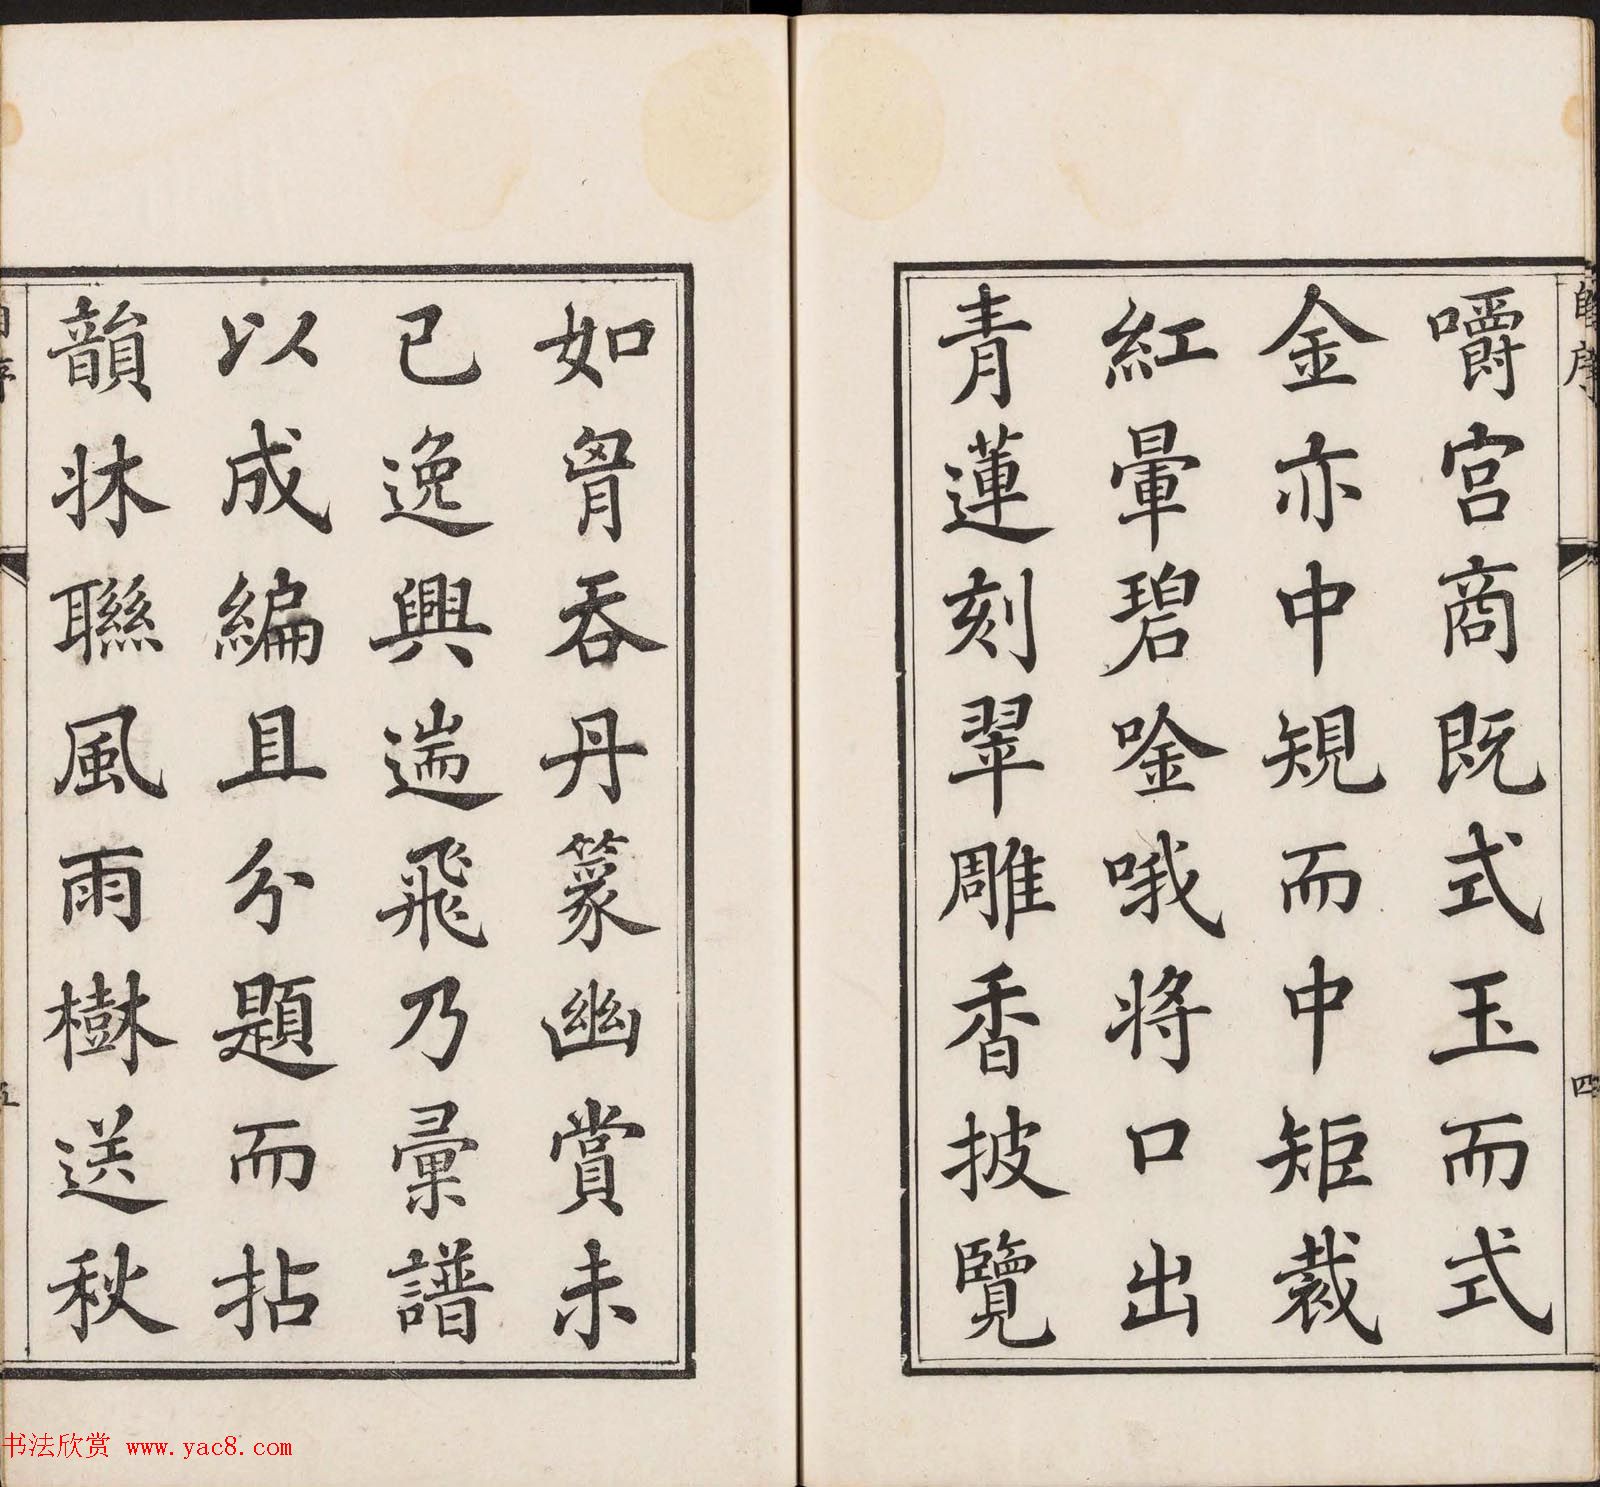 嚼宮商既式玉而式
金亦中規而中矩裁
紅暈碧唫哦將口出
青蓮刻翠雕香披覽
如胷吞丹篆幽賞未
已逸興遄飛乃彙譜
以成編且分題而拈
韻牀聯風雨樹送秋
自序
四
自序
五
书法欣赏 www.yac8.com